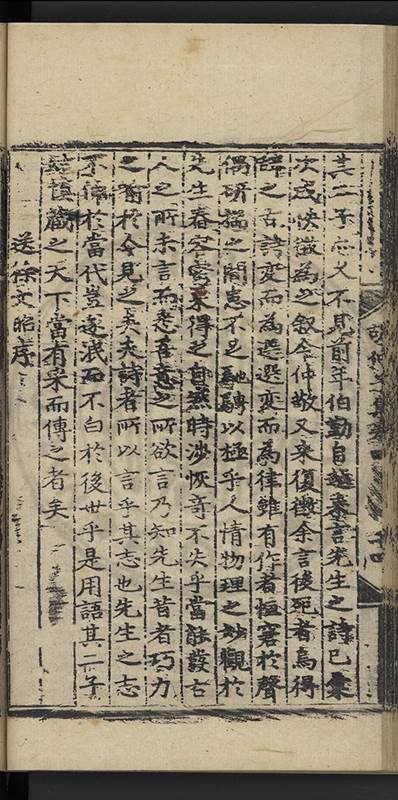 其二子亦久不見前年伯勤自越來言先生之詩已彙
次成帙徵為之叙今仲敬又來復徵余言後死者烏得
辭之古詩變而為選選變而為律雖有作者恒窘於聲
偶研揣之間患不足馳騁以極乎人情物理之妙觀於
先生春容 得之自然時涉恢奇不失乎當能發古
人之所未言而悉吾意之所欲言乃知先生昔者巧力
之喻於今見之矣夫詩者所以言乎其志也先生之志
不伸於當代豈遂泯而不白於後世乎是用語其二子
謹藏之天下當有采而傳之者矣
送徐文昭序